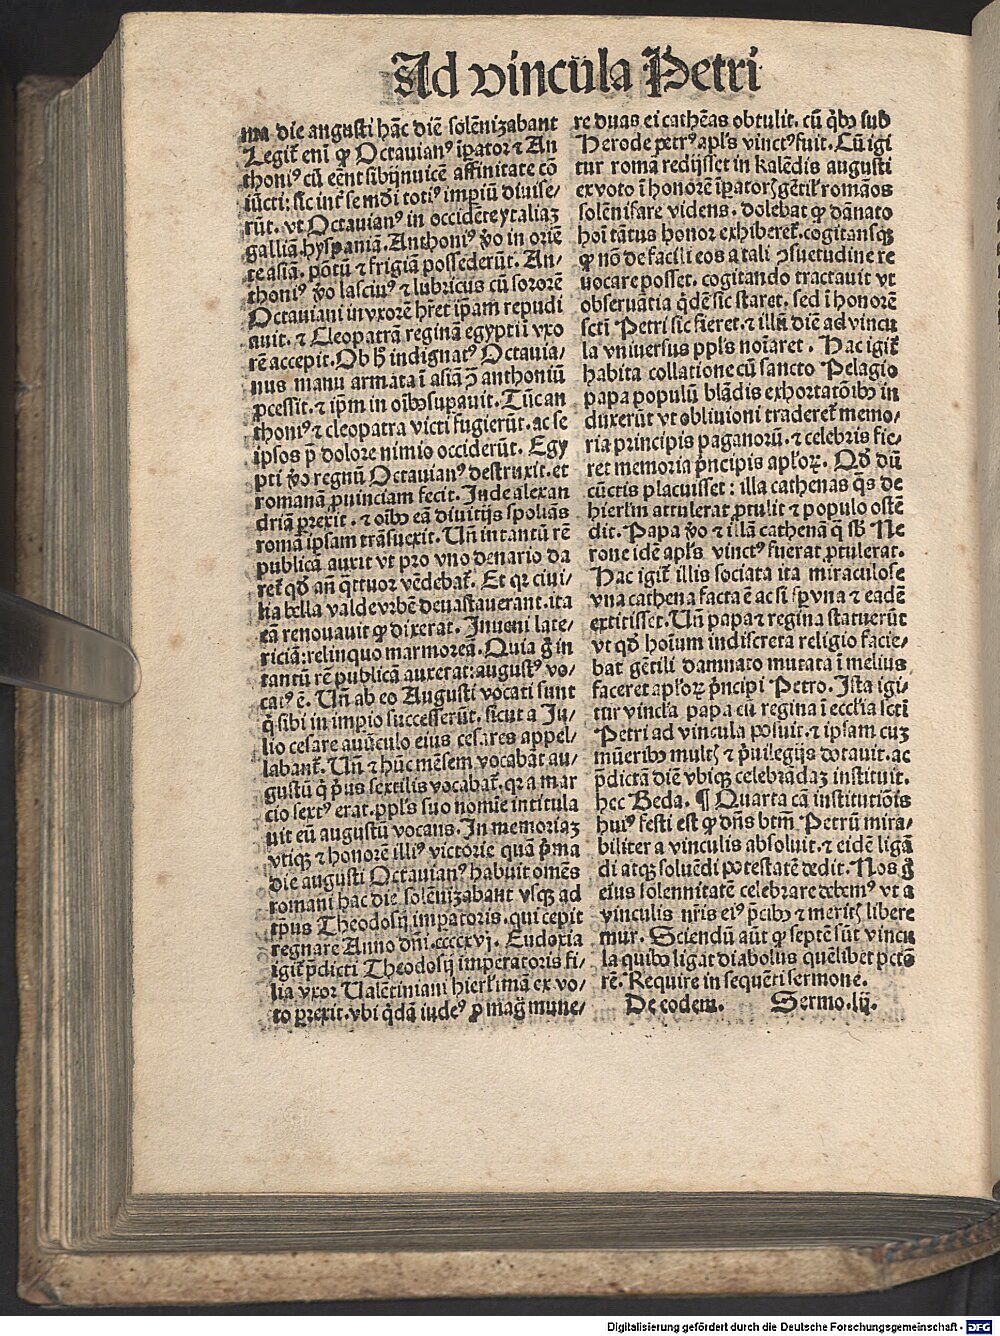 Ad vincula Petri
ma die angusti hāc diē solēnizabant
Legit̄ enī ꝙ Octauianꝰ īꝑator ⁊ An
thoniꝰ cū eēnt sibijnuicē affinitate cō
iūcti: sic int̄ se mūdi totiꝰ impiū diuise-
rūt. vt Octauianꝰ in occidēte ytaliaꝫ
galliā. hyspaniā. Anthoniꝰ ꝟo in oriē
te asiā. pōtū ⁊ frigiā possederūt. An-
thoniꝰ ꝟo lasciuꝰ ⁊ lubricus cū sororē
Octauiani in vxorē hr̄et ip̄am repudi
auit. ⁊ Cleopatrā reginā egypti ī vxo
rē accepit. Ob h̄ indignatꝰ Octauia-
nus manu armata ī asiā ↄ̄ anthoniū
ꝓcessit. ⁊ ip̄m in oībꝰ suꝑauit. Tūc an
thoniꝰ ⁊ cleopatra victi fugierūt. ac se
ipsos p̄ dolore nimio occiderūt. Egy
pti ꝟo regnū Octauianꝰ destruxit. et
romanā ꝓuinciam fecit. Inde alexan
driā ꝑrexit. ⁊ oībꝰ eā diuitijs spoliās
romā ipsam trāsuexit. Vn̄ in tantū rē
publicā auxit vt pro vno denario da
ret̄ qd̄ an̄ q̄ttuor vēdebat̄. Et qꝛ ciui-
lia bella valde vrbē deuastauerant. ita
eā renouauit ꝙ dixerat. Inueni late-
riciā: relinquo marmoreā. Quia g̊ in
tantū rē publicā auxerat: augustꝰ vo-
catꝰ ē. Vn̄ ab eo Augusti vocati sunt
q̇ sibi in imꝑio successerūt. sicut a Ju-
lio cesare auūculo eius cesares appel-
labant̄. Vn̄ ⁊ hūc mēsem vocabāt au-
gustū q̇ pꝰus sextilis vocabat̄. qꝛ a mar
cio sextꝰ erat. ppl̄s suo nomīe intitula
uit eū augustū vocans. In memoriaꝫ
vtiqꝫ ⁊ honorē illiꝰ victorie quā p̄ma
die augusti Octauianꝰ habuit omēs
romani hac die solēnizabant vsqꝫ ad
tp̄us Theodosij imꝑatoris. qui cepit
regnare Anno dn̄i. ccccxvj. Eudoxia
igit̄ p̄dicti Theodosij imperatoris fi-
lia vxor Valētiniani hierl̄imā ex vo-
to ꝑrexit. vbi q̇dā iudeꝰ ꝓ mag̊ mune-
re duas ei cathēas obtulit. cū q̇bꝰ sub
Herode petrꝰ apl̄s vinctꝰ fuit. Cū igi
tur romā redijsset in kalēdis augusti
ex voto ī honorē īꝑatorꝭ gētil̄ romāos
solēnisare videns. dolebat ꝙ dānato
hoī tātus honor exhiberet̄. cogitansqꝫ
ꝙ nō de facili eos a tali ↄsuetudine re
uocare posset. cogitando tractauit vt
obseruātia q̇dē sic staret. sed ī honorē
scti Petri sic fieret. ⁊ illū diē ad vincu
la vniuersus ppl̄s noīaret. Hac igit̄
habita collatione cū sancto Pelagio
papa populū blādis exhortatōibꝰ in
duxerūt vt obliuioni traderet̄ memo-
ria principis paganorū. ⁊ celebris fie-
ret memoria p̄ncipis apl̄oꝝ. Qd̄ dū
cūctis placuisset: illa cathenas q̄s de
hierl̄m attulerat ꝓtulit ⁊ populo ostē
dit. Papa ꝟo ⁊ illā cathenā q̄ sb̄ Ne
rone idē apl̄s vinctꝰ fuerat ꝓtulerat.
Hac igit̄ illis sociata ita miraculose
vna cathena facta ē ac si sꝑ vna ⁊ eadē
extitisset. Vn̄ papa ⁊ regina statuerūt
vt qd̄ hoīum indiscreta religio facie-
bat gētili damnato mutata ī melius
faceret apl̄oꝝ p̄ncipi Petro. Ista igi-
tur vincl̄a papa cū regina ī eccl̄ia scti
Petri ad vincula posuit. ⁊ ipsam cuꝫ
mūeribꝰ multꝭ ⁊ p̄uilegijs dotauit. ac
p̄dictā diē vbiqꝫ celebrādaꝫ instituit.
hec Beda. ¶ Quarta cā institutiōis
huiꝰ festi est ꝙ dn̄s btm̄ Petrū mira-
biliter a vinculis absoluit. ⁊ eidē ligā
di atqꝫ soluēdi potestatē dedit. Nos g̊
eius solennitatē celebrare debemꝰ vt a
vinculis nr̄is eiꝰ p̄cibꝰ ⁊ meritꝭ libere
mur. Sciendū aūt ꝙ septē sūt vincu
la quibꝰ ligat diabolus quēlibet pctō
rē. Require in sequēti sermone.
De eodem. Sermo. lij.
Digitalisierung gefördert durch die Deutsche Forschungsgemeinschaft - DFG